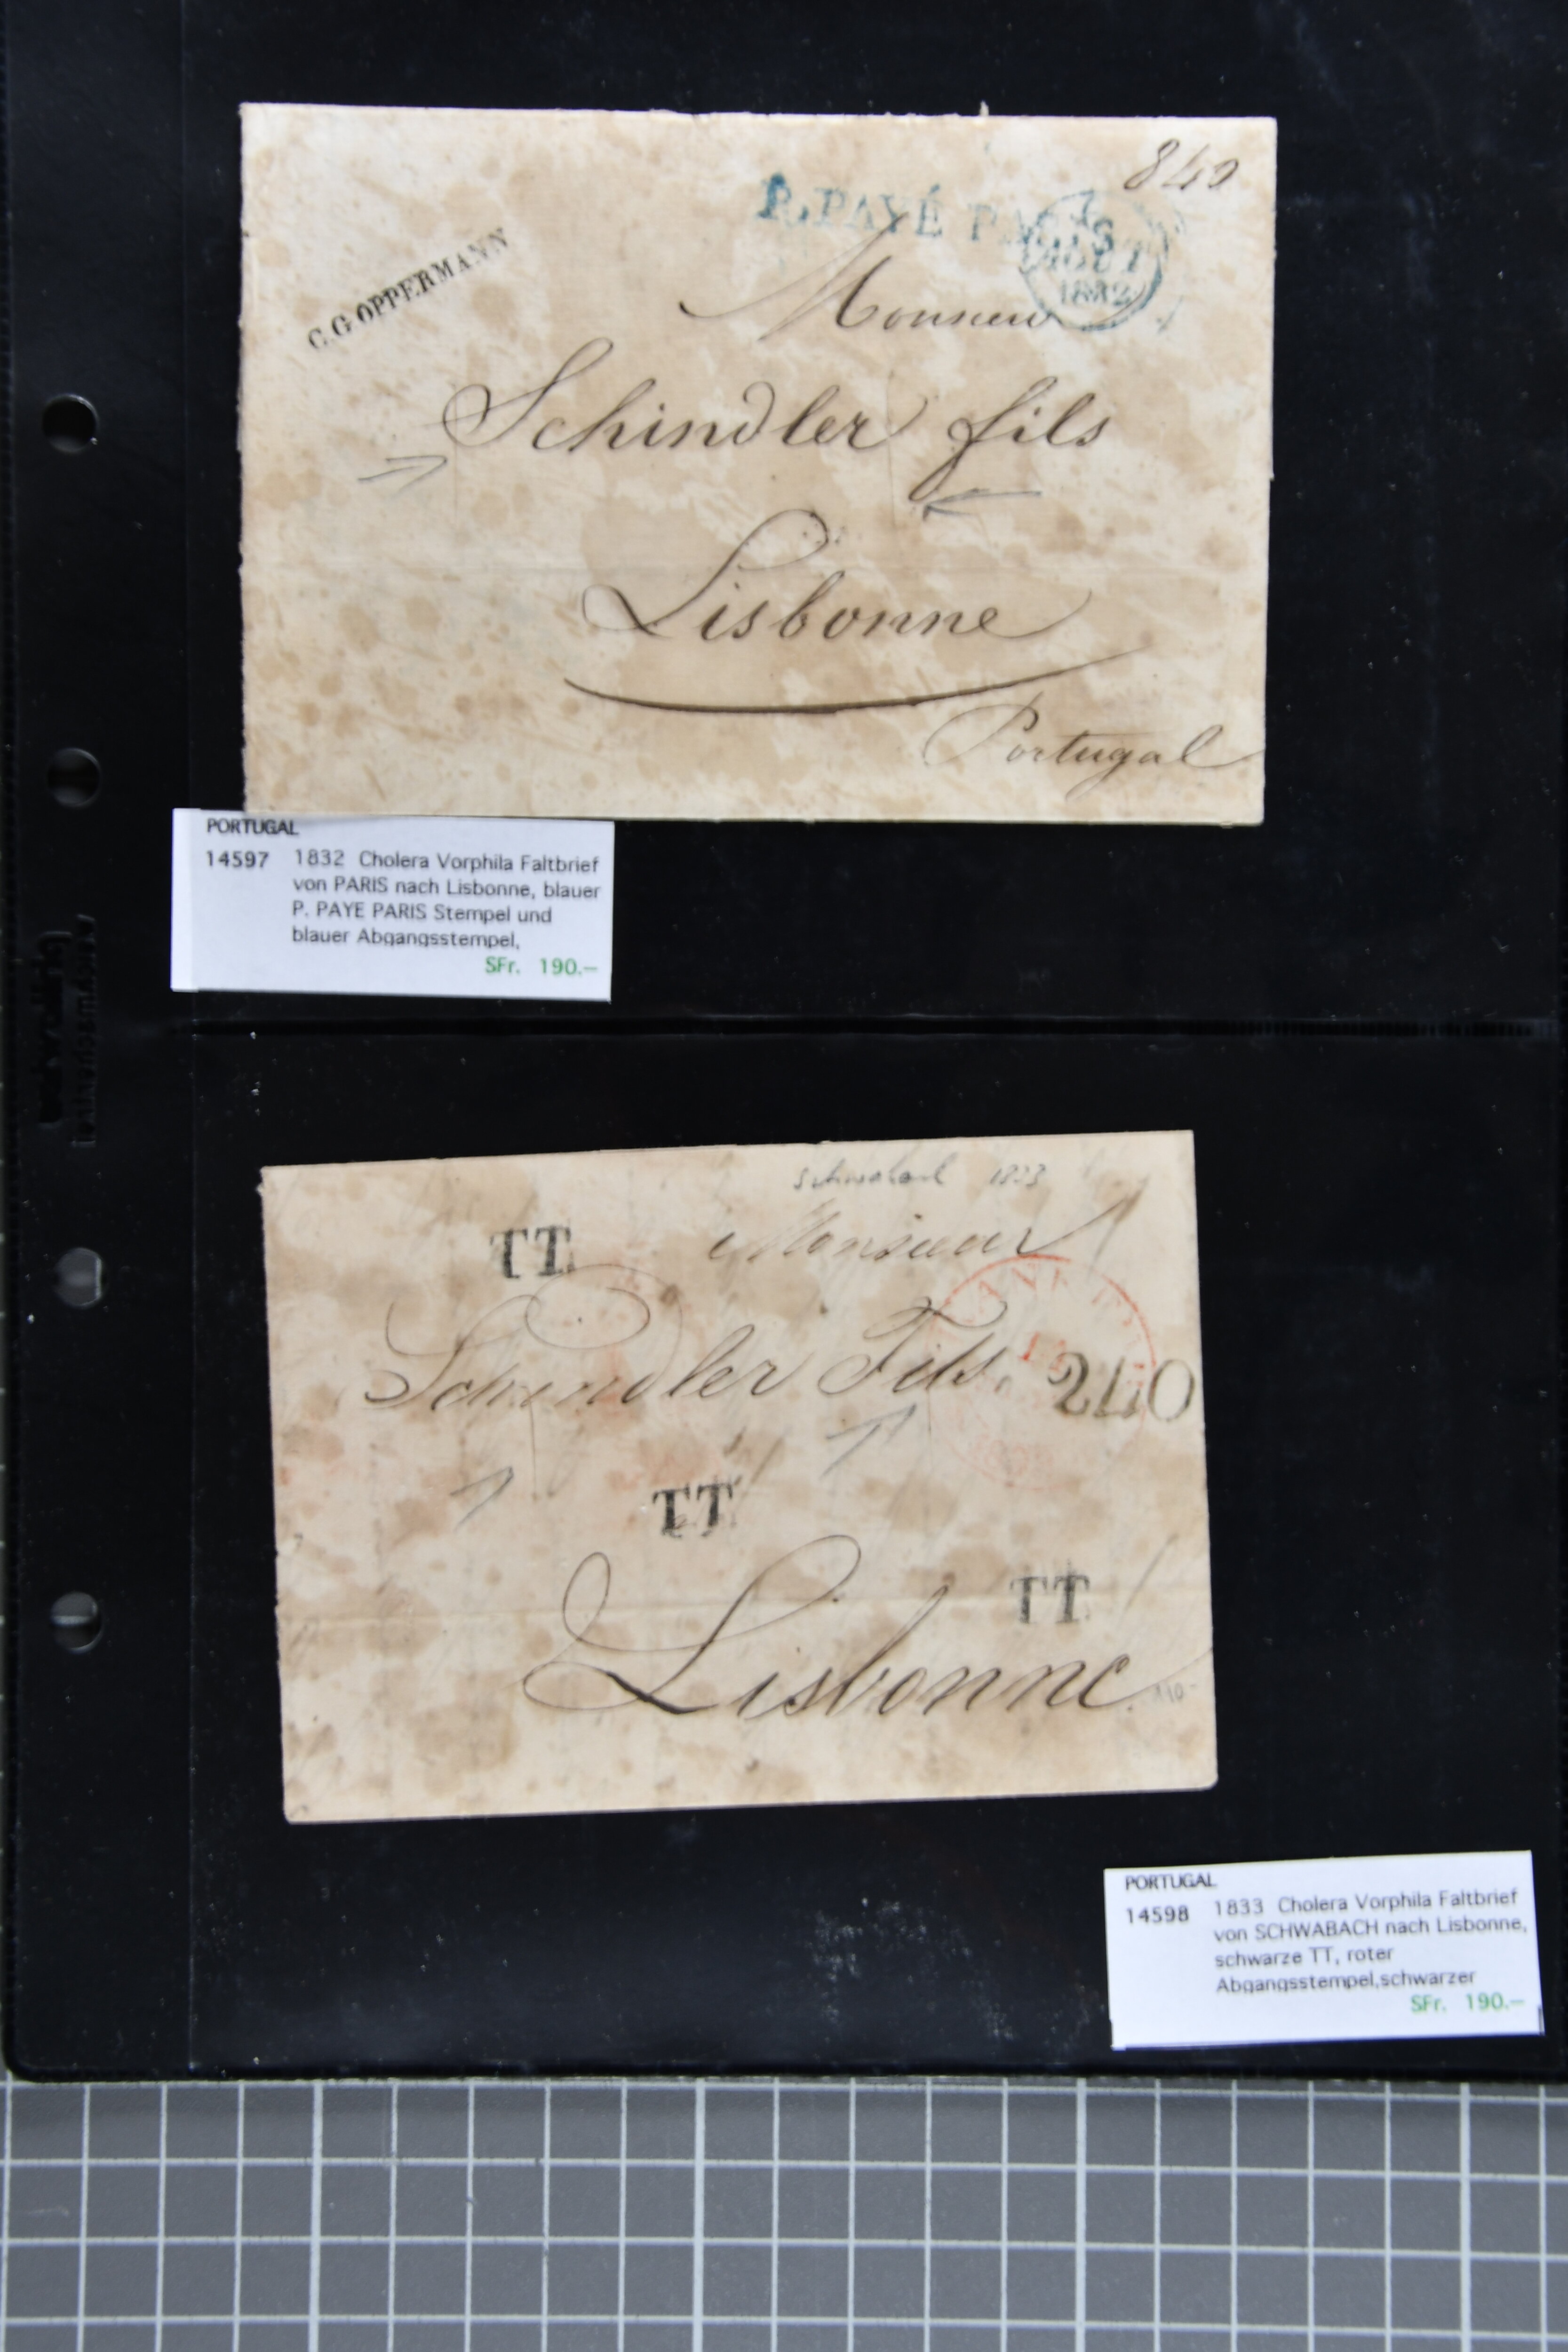 840
P. PAYÉ PARIS
7
AOUT
1832
C.G OPPERMANN
Monsieur
Schindler fils
Lisbonne
Portugal
PORTUGAL
14597 1832 Cholera Vorphila Faltbrief
von PARIS nach Lisbonne, blauer
P. PAYE PARIS Stempel und
blauer Abgangsstempel,
SFr. 190.–
Schwabach 1833
TT.
Monsieur
Schindler Fils,
240
TT.
TT.
Lisbonne
PORTUGAL
14598 1833 Cholera Vorphila Faltbrief
von SCHWABACH nach Lisbonne,
schwarze TT, roter
Abgangsstempel,schwarzer
SFr. 190.–